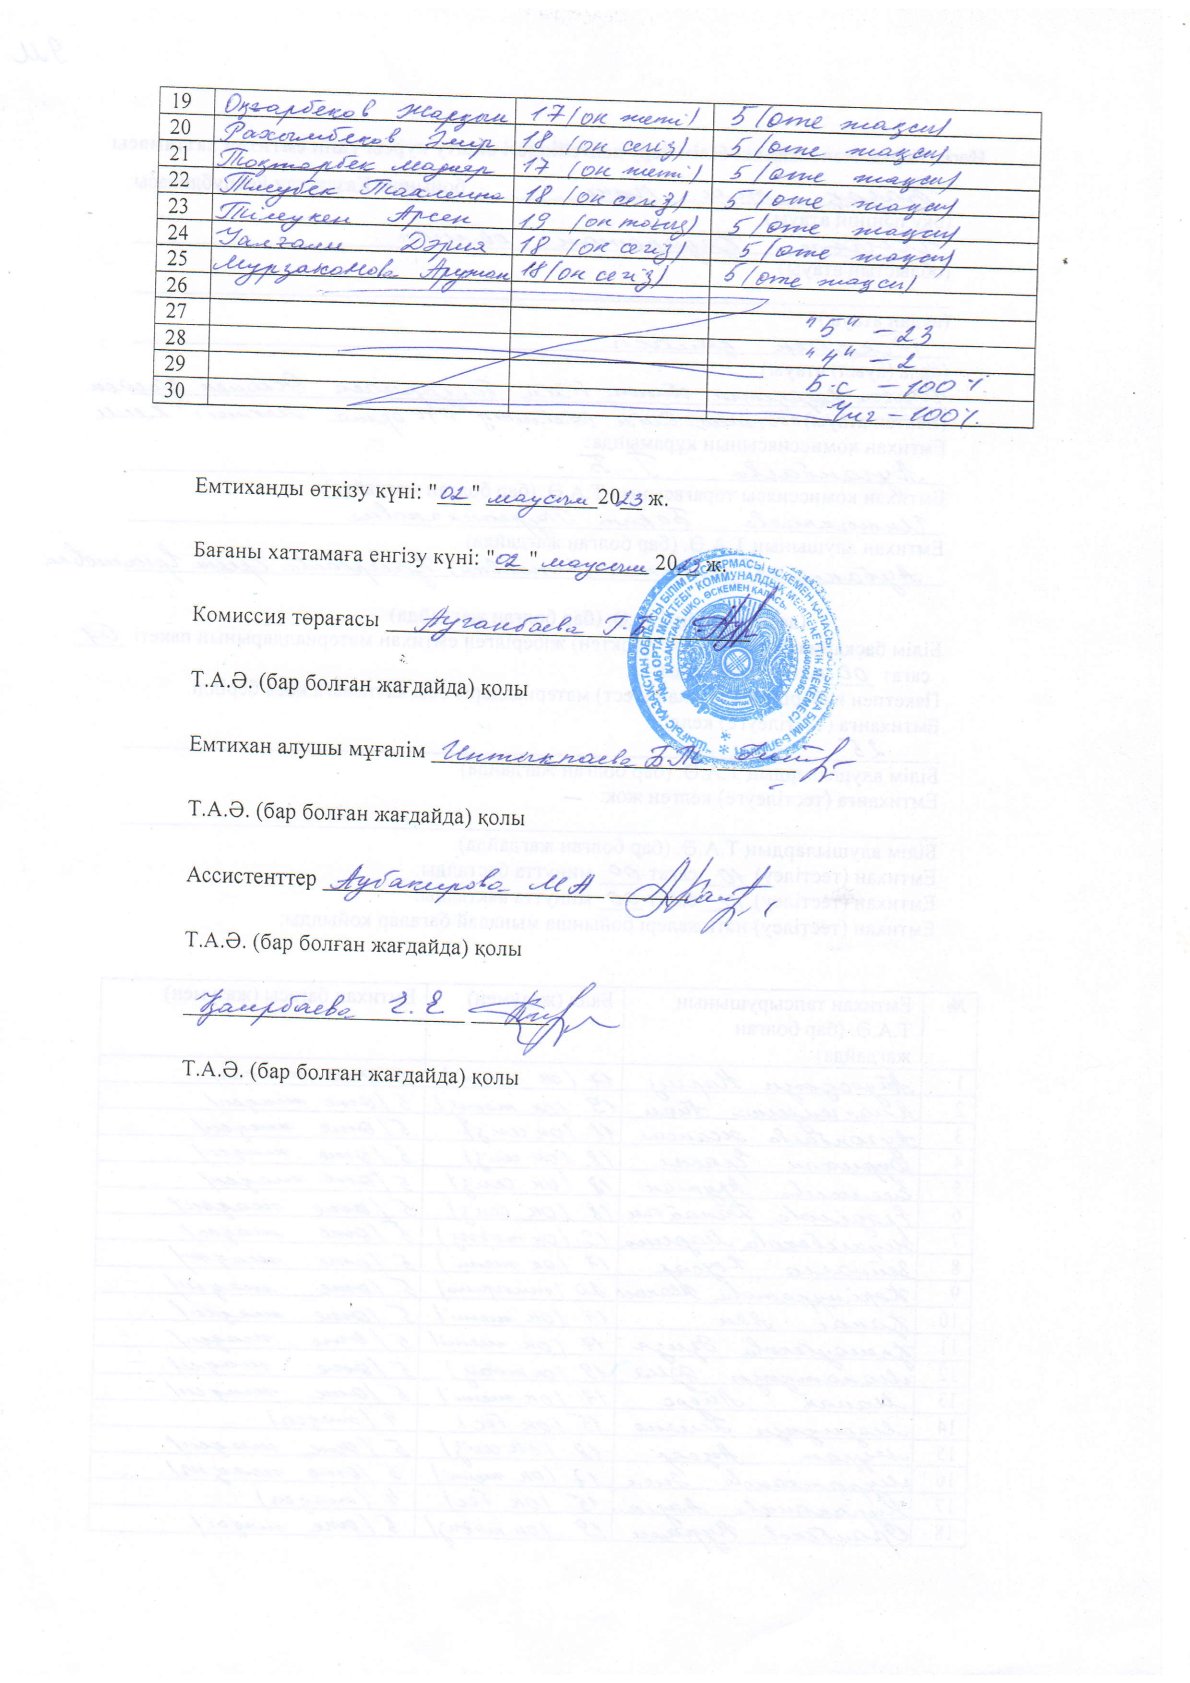 19 Оңғарбеков 17 (он жеті) 5 (өте жақсы)
20 Рахымбеков Әмір 18 (он сегіз) 5 (өте жақсы)
21 Тоқтарбек Мадияр 17 (он жеті) 5 (өте жақсы)
22 Тлеубек 18 (он сегіз) 5 (өте жақсы)
23 Тілеукен Арсен 19 (он тоғыз) 5 (өте жақсы)
24 Уалғали Дэрия 18 (он сегіз) 5 (өте жақсы)
25 Мурзаканова Аружан 18 (он сегіз) 5 (өте жақсы)
26
27 "5" – 23
28 "4" – 2
29 Б.с – 100%
30 Үлг – 100%
Емтиханды өткізу күні: "02" маусым 2023 ж.
Бағаны хаттамаға енгізу күні: "02" маусым 2023 ж.
Комиссия төрағасы Ауганбаева Г.Б
Т.А.Ә. (бар болған жағдайда) қолы
Емтихан алушы мұғалім Интыкпаева Б.Т.
Т.А.Ә. (бар болған жағдайда) қолы
Ассистенттер Аубакирова М А
Т.А.Ә. (бар болған жағдайда) қолы
Қаирбаева Г. Е
Т.А.Ә. (бар болған жағдайда) қолы